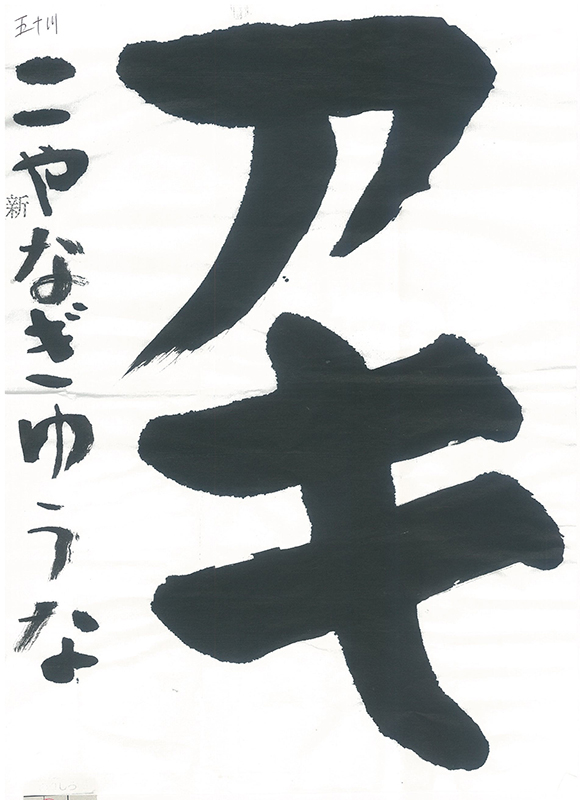 アキ
五十川
二やなぎゆうな
新